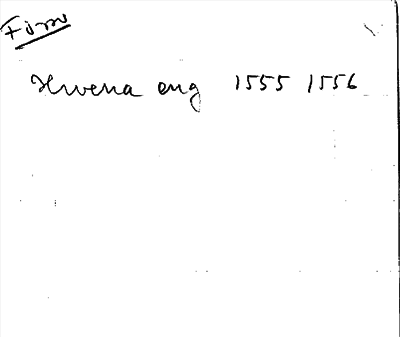 Hwena eng 1555 1556